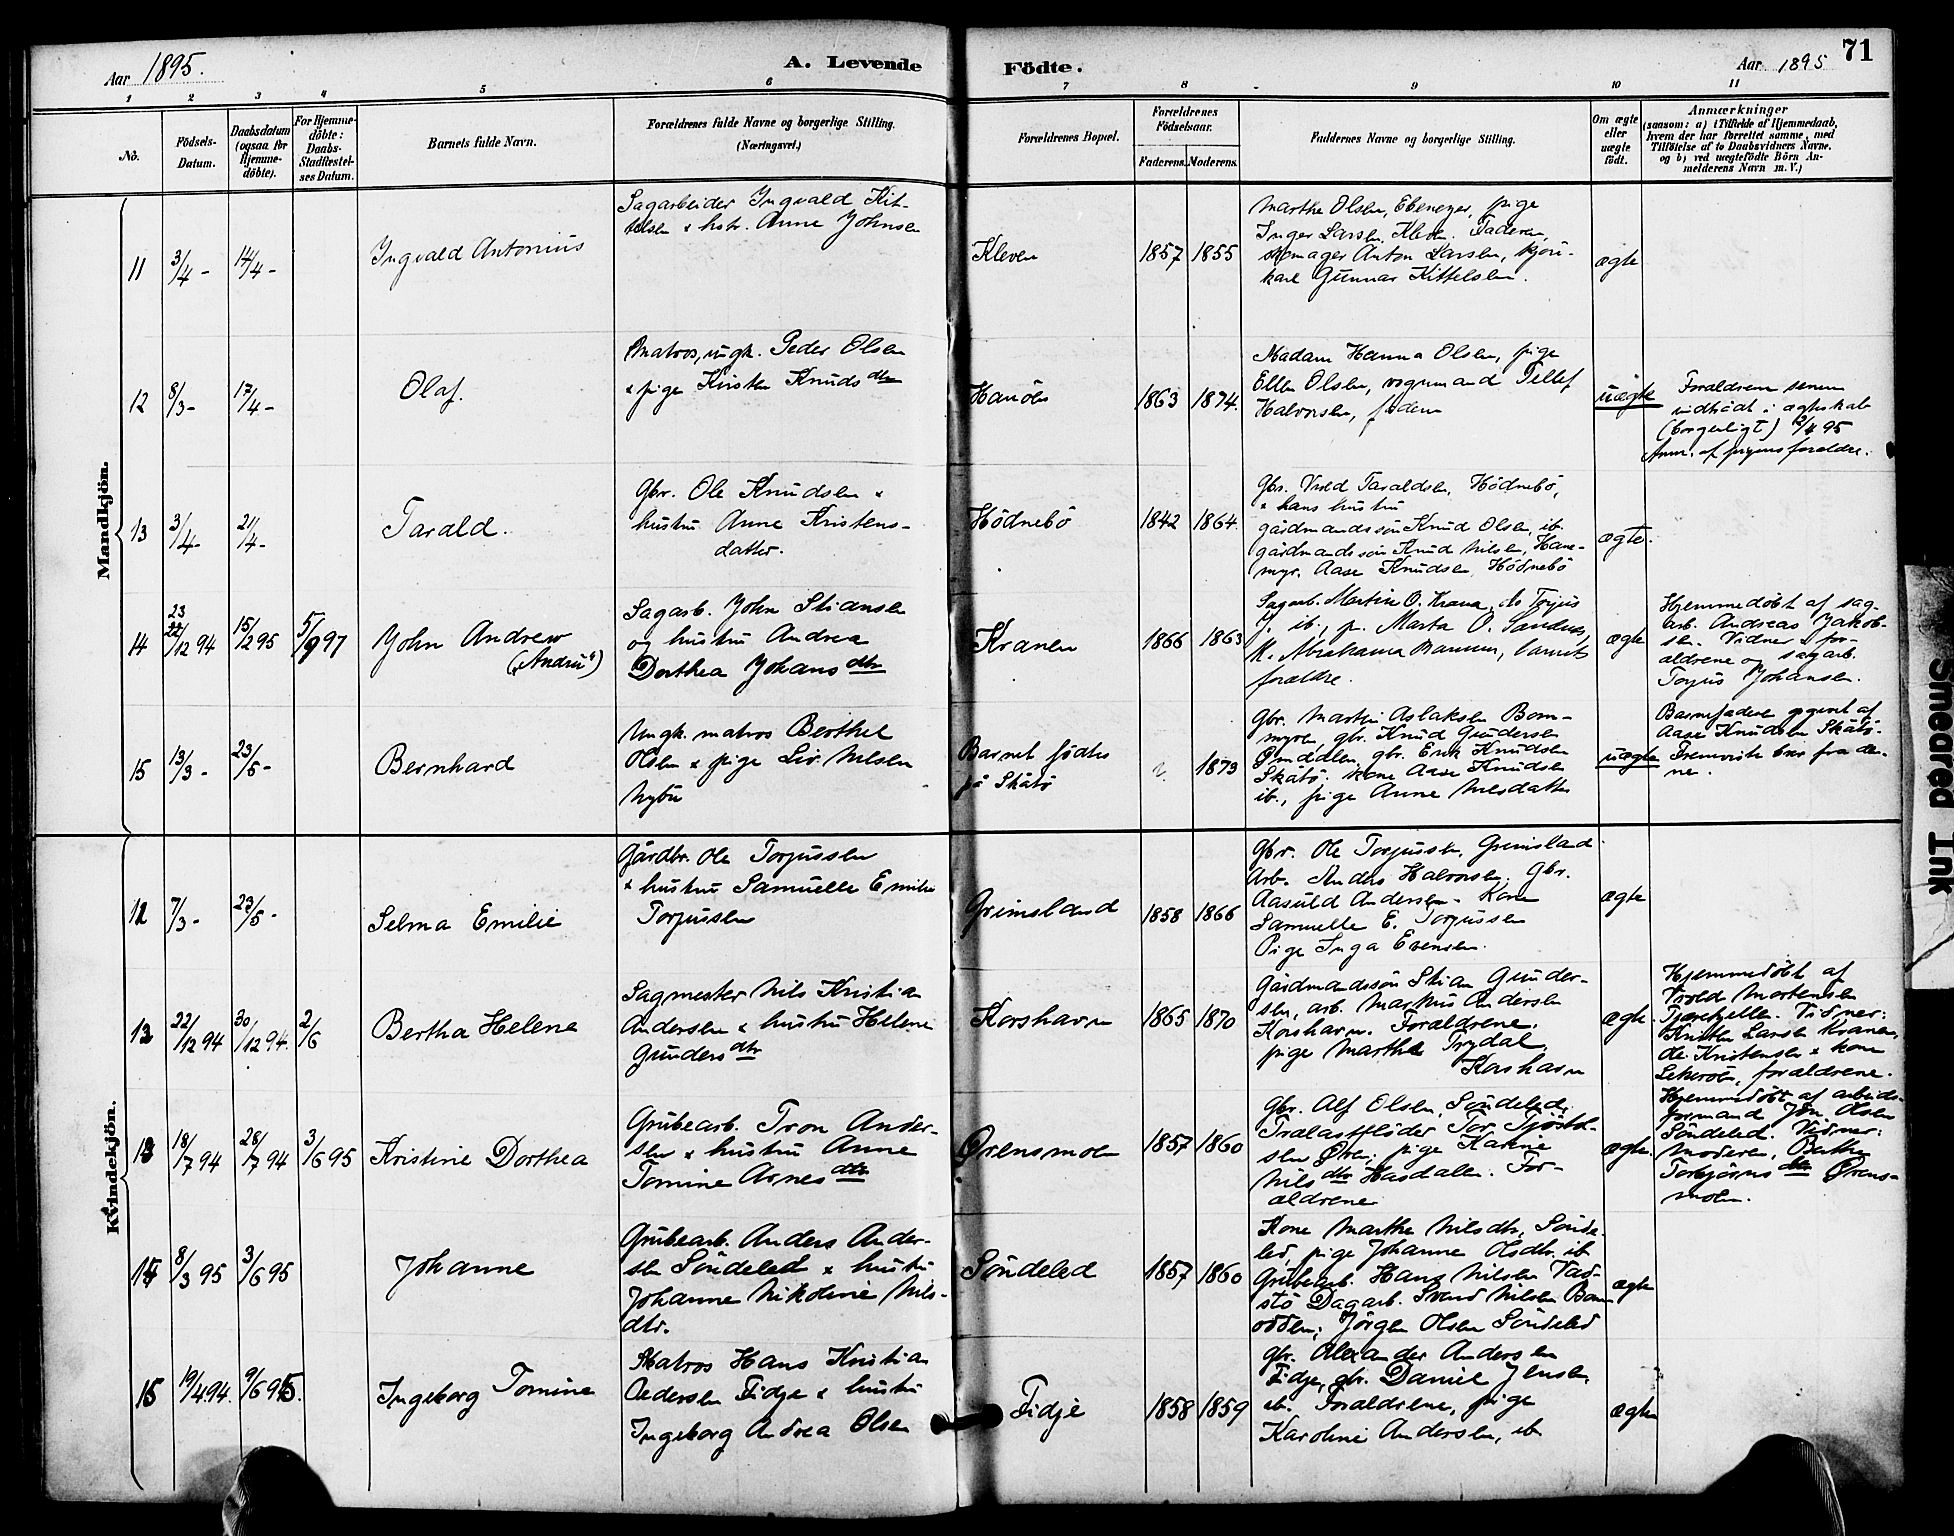 Aar 1895.
A. Levende Födte.
Aar 1895
71
1 2 3 4 5 6 7 8 9 10 11
No.
Födsels-Datum.
Daabsdatum (ogsaa for Hjemme-döbte).
For Hjemme-döbte: Daabs-Stadfæstel-ses Datum.
Barnets fulde Navn.
Forældrenes fulde Navne og borgerlige Stilling. (Næringsvei.)
Forældrenes Bopæl.
Forældrenes Födselsaar.
Faderens. Moderens.
Faddernes Navne og borgerlige Stilling.
Om ægte eller uægte födt.
Anmærkninger
(saasom: a) i Tilfælde af Hjemmedaab, hvem der har forrettet samme, med Tilföielse af to Daabsvidners Navne. og b) ved uægtefödte Börn An-melderens Navn m. V.)
Mandkjön.
11
3/4 -
14/4 -
Ingvald Antonius
Sagarbeider Ingvald Kit-
telsen & hstr. Anne Johnsen
Kleven
1857
1855
Marthe Olsen, Ebenezer, pige
Inger Larsen, Kleven. Faderen,
skomager Anton Larsen, kjöre-
karl Gunnar Kittelsen.
ægte
12
8/3 -
17/4 -
Olaf.
Matros, ungk. Peder Olsen
& pige Kirsten Knudsdtr
1863
1874.
Madam Hanna Olsen, pige
Ellen Olsen, vognmand Tellef
Halvorsen, faderen
uægte
Forældrene senere
indtrådt i ægteskab
(borgerligt) 2/4 95
Anm. af pigens forældre.
13
3/4 -
21/4 -
Tarald.
Gbr. Ole Knudsen &
hustru Anne Kristens-
datter.
Hödnebö
1842
1864.
Gbr. Vrold Taraldsen, Hödnebö,
& hans hustru
gårdmandssön Knud Olsen, ib.
gårdmandssön Knud Nilsen, Hane-
myr. Aase Knudsen, Hödnebö
ægte.
14
23
22/12 94
15/2 95
5/9 97
John Andrew
("Andrü")
Sagarb. John Stiansen
og hustru Andrea
Dorthea Johansdtr
Kranen
1866
1863
Sagarb. Martin O. Krana,
J. ib., p. Marta O.
K. Abrahama barnets
forældre.
ægte
Hjemmedöbt af sag-
arb. Andreas Jakob-
sen. Vidner: for-
ældrene og sagarb.
Torjus Johansen.
15
13/3 -
23/5 -
Bernhard
Ungk. matros Berthel
Olsen & pige Liv Nilsen
Nybu
Barnet födtes
på Skåtö
1873
gbr. Martin Aslaksen Bom-
myren, gbr. Knud Gundersen
gbr. Erik Knudsen
Skåtö. kone Aase Knudsen
ib., pige Anne Nilsdatter
uægte
Barnefader opgivet af
Aase Knudsen Skåtö.
Fremviste brev fra de-
ne.
Kvindekjön.
12
7/3 -
23/5 -
Selma Emilie
Gårdbr. Ole Torjussen
& hustru Samuelle Emilie
Torjussen
Grimsland
1858
1866
Gbr. Ole Torjussen, Grimsland
Arb. Anders Halvorsen. Gbr.
Aasuld Andersen. Kone
Samuelle E. Torjussen
Pige Inga Evensen.
ægte
12
22/12 94
30/12 94.
2/6
Bertha Helene
Sagmester Nils Kristian
Andersen & hustru Helene
Gundersdtr
Korshavn
1865
1870
Gårdmandssön Stian Gunder-
sen, arb. Markus Andersen
Korshavn. Forældrene.
pige Marthe Trydal,
Korshavn
ægte.
Hjemmedöbt af
Vrold Mortensen
Vidner:
Kirsten Larsen Kranen,
Ole Kristensen & kone
forældrene.
13
18/7 94
28/7 94
3/6 95
Kristine Dorthea
Grubearb. Tron Ander-
sen & hustru Anne
Tomine Arnesdtr
Ørensmoen
1857
1860
gbr. Alf Olsen, Söndeled.
Trælastflöder Tor Tjöstol-
sen Øren; pige Katrine
Nilsdtr Hasdalen. For-
ældrene
ægte.
Hjemmedöbt af arbeids-
formand Jon Olsen
Söndeled. Vidner:
Moderen,
Torbjörnsdtr Ørens-
moen.
14
8/3 95
3/6 95
Johanne
Grubearb. Anders Ander-
sen Söndeled & hustru
Johanne Nikoline Nils-
dtr.
Söndeled
1857
1860
Kone Marthe Nilsdtr, Sönde-
led, pige Johanne Olsdtr. ib
Grubearb. Hans Nilsen Vad-
stö Dagarb. Svend Nilsen Bom-
odden; Jörgen Olsen Söndeled
ægte
15
19/4.94.
9/6 95.
Ingeborg Tomine
Matros Hans Kristian
Pedersen Fidje & hustru
Ingeborg Andrea Olsen
Fidje
1858
1859
gbr. Alexander Andersen
Fidje, gbr. Daniel Jensen
ib. Forældrene, pige
Karoline Andersen, ib
ægte
Smeared Ink